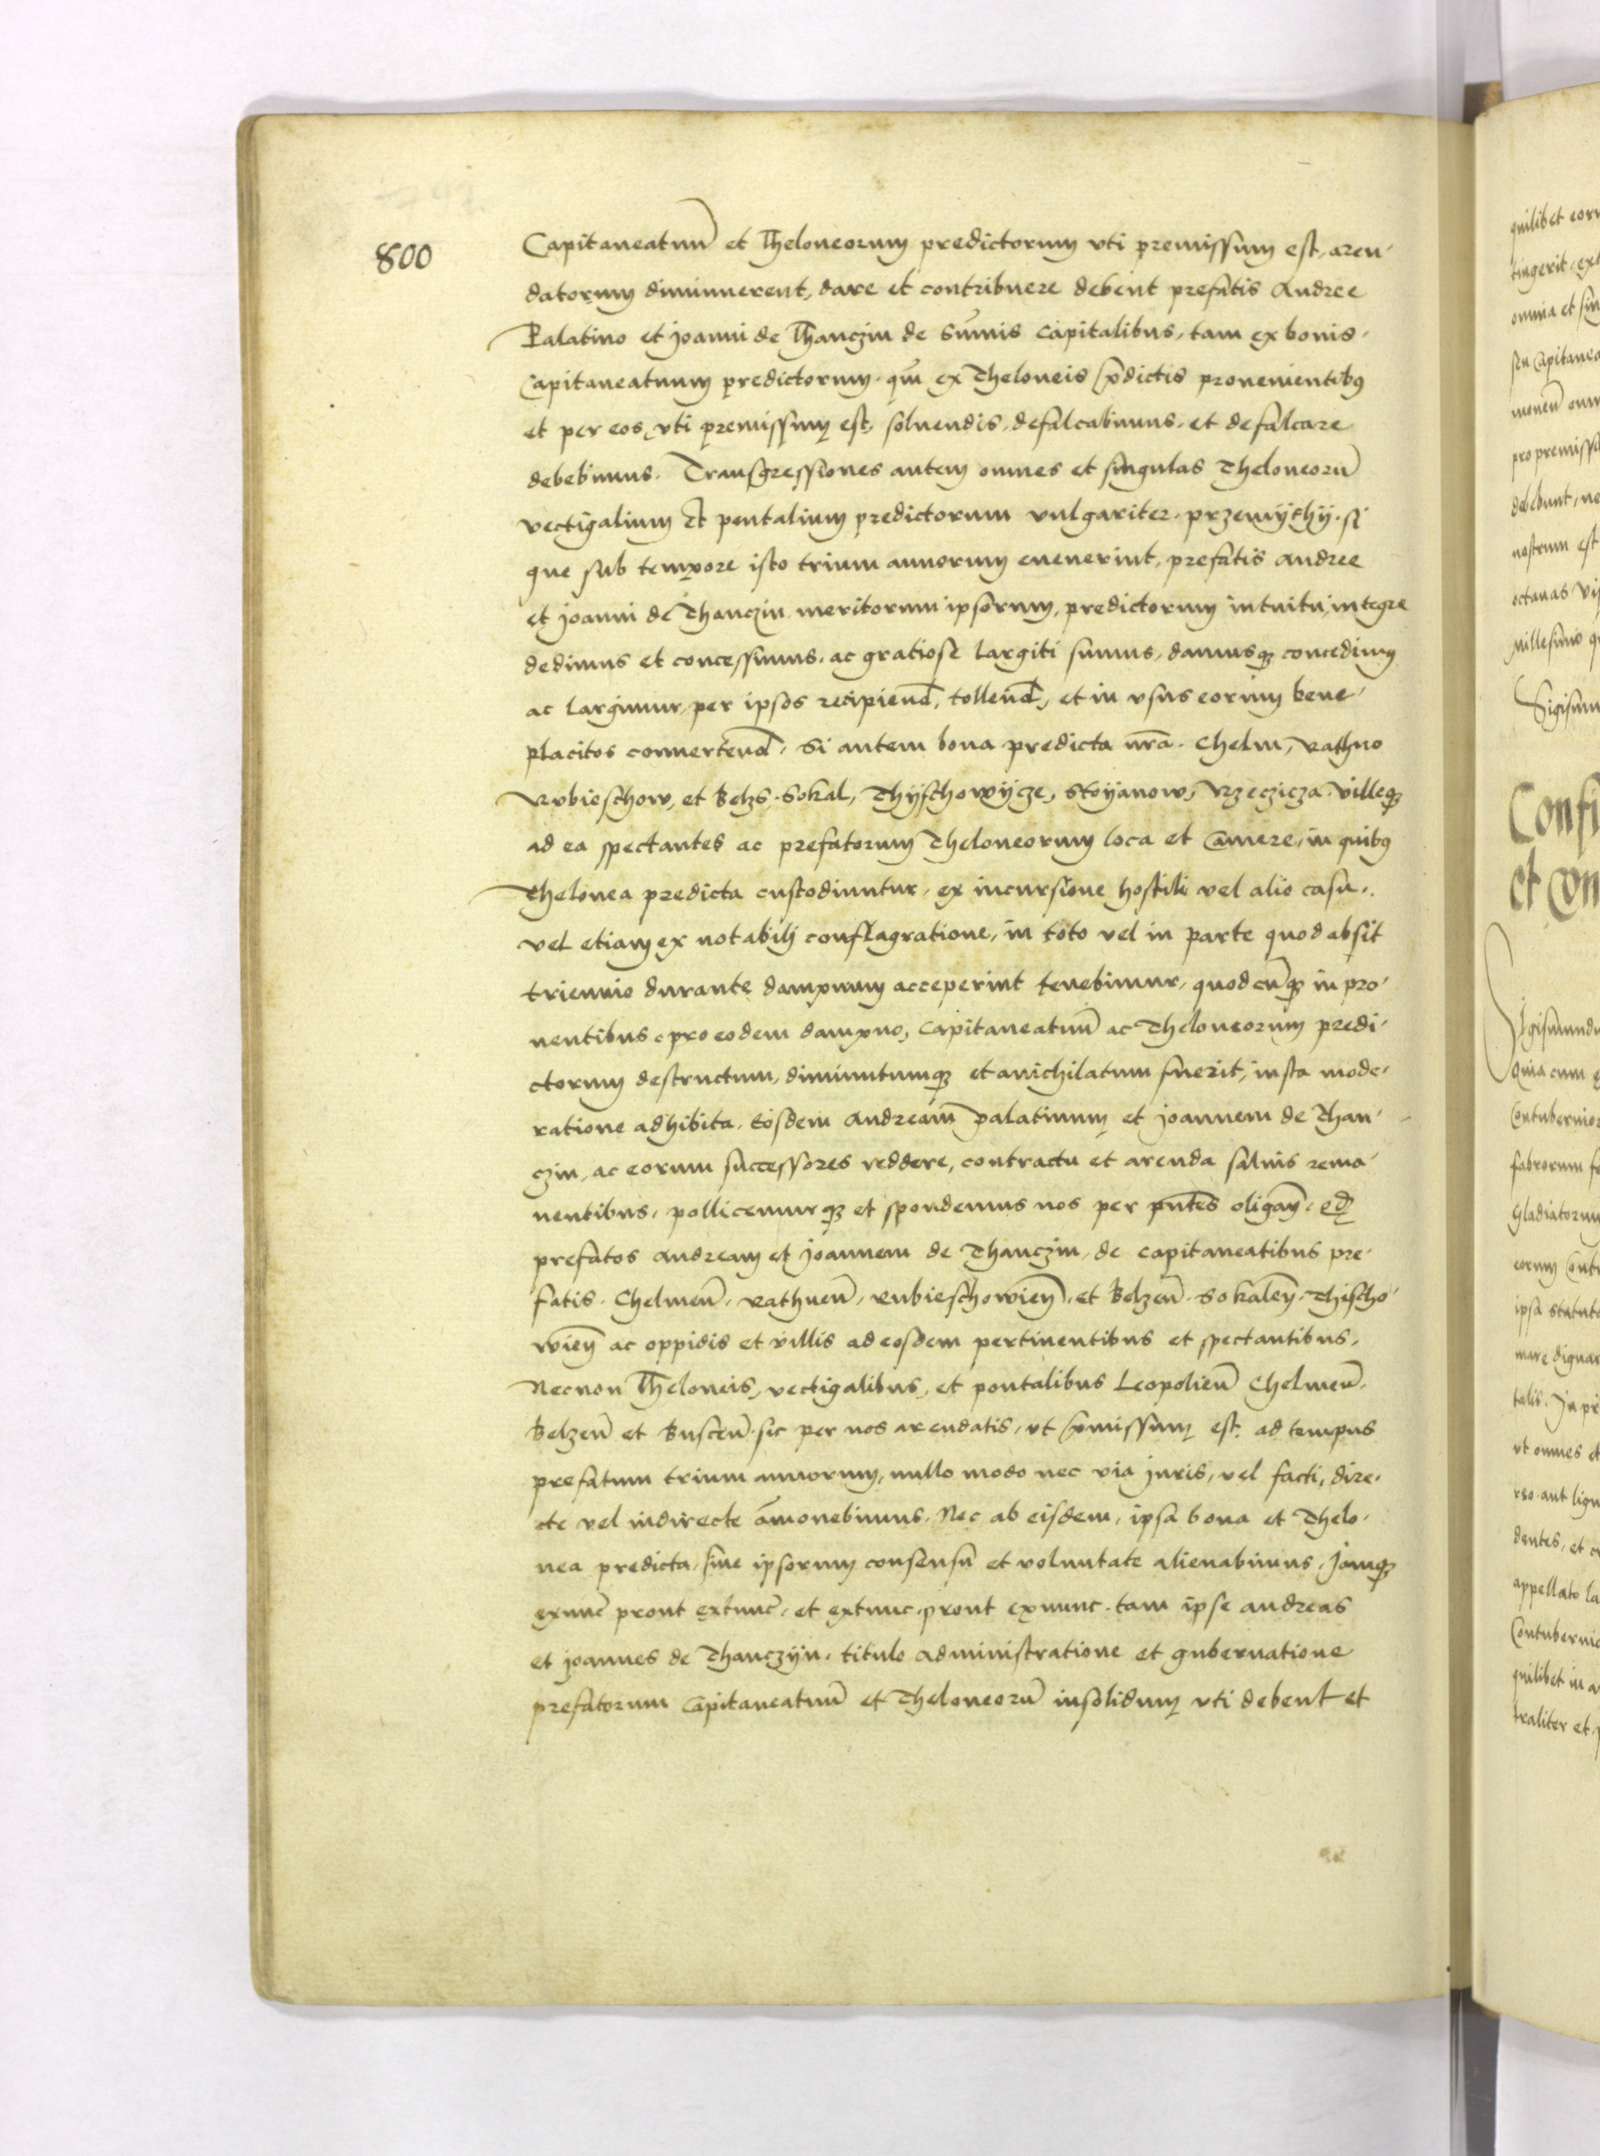 800
Capitaneatuū et Theloneorum predictorum vti premissum est, aren-
datorum diminuerent, dare et contribuere debent prefatis Andree
Palatino et Joanni de Thanczin de Sūmis capitalibus, tam ex bonis,
Capitaneatuum predictorum, qm̄ ex Theloneis p̄dictis provenientibus
et per eos, vti premissum est, soluendis, defalcabimus, et defalcare
debebimus. Transgressiones autem omnes et singulas Theloneorū
vectigalium et pontalium predictorum vulgariter przemijthij, si
que sub tempore isto trium annorum euenerint, prefatis Andree
et Joanni de Thanczin meritorum ipsorum, predictorum intuitu, integre
dedimus et concessimus, ac gratiose largiti sumus, damusq; concedimus
ac largimur, per ipsos recipiend̄, tollend̄, et in vsus eorum bene-
placitos conuertend̄. Si autem bona predicta nr̄a Chelm, Rathno
Rubieschow, et Belzs, Sokal, Thijschowijcze, Stoijanow, Rzeczicza villeq;
ad ea spectantes ac prefatorum Theloneorum loca et camere, in quibus
Thelonea predicta custodiuntur, ex incursione hostili vel alio casu,
vel etiam ex notabilj conflagratione, in toto vel in parte quod absit
triennio durante dampnum acceperint tenebimur, quodcūq; in pro-
uentibus pro eodem dampno, Capitaneatuū ac Theloneorum predi-
ctorum destructum, diminutumq; et anichilatum fuerit, iusta mode-
ratione adhibita, eosdem Andream Palatinum et Joannem de Than-
czin, ac eorum successores reddere, contractu et arenda saluis rema-
nentibus, pollicemurq; et spondemus nos per pn̄tes oligan̄,
prefatos Andream et Joannem de Thanczin, de capitaneatibus pre-
fatis Chelmeń, Rathneń, Rubieschowień, et Belzeń, Sokaleń, Thischo-
wień ac oppidis et villis ad eosdem pertinentibus et spectantibus,
Necnon Theloneis, vectigalibus, et pontalibus Leopolień Chelmeń,
Belzeń et Busceń, sic per nos arendatis, vt p̄missum est, ad tempus
prefatum trium annorum, nullo modo nec via juris, vel facti, dire-
cte vel indirecte āmonebimus, Nec ab eisdem, ipsa bona et Thelo-
nea predicta, sine ipsorum consensu et voluntate alienabimus, Jamq;
exnunc prout extunc, et extunc prout exnunc, tam ipse Andreas
et Joannes de Thanczijn, titulo administratione et gubernatione
prefatorum Capitaneatuū et Theloneorū insolidum vti debent et
Confi
et Con